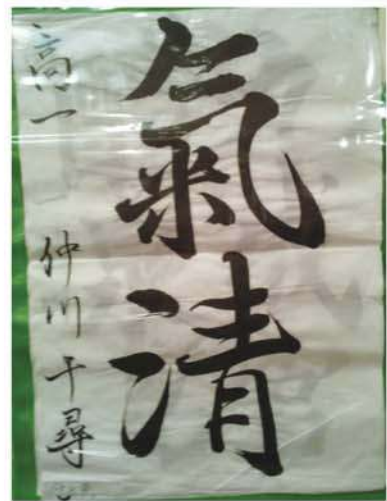 氣清
高一 仲川千尋